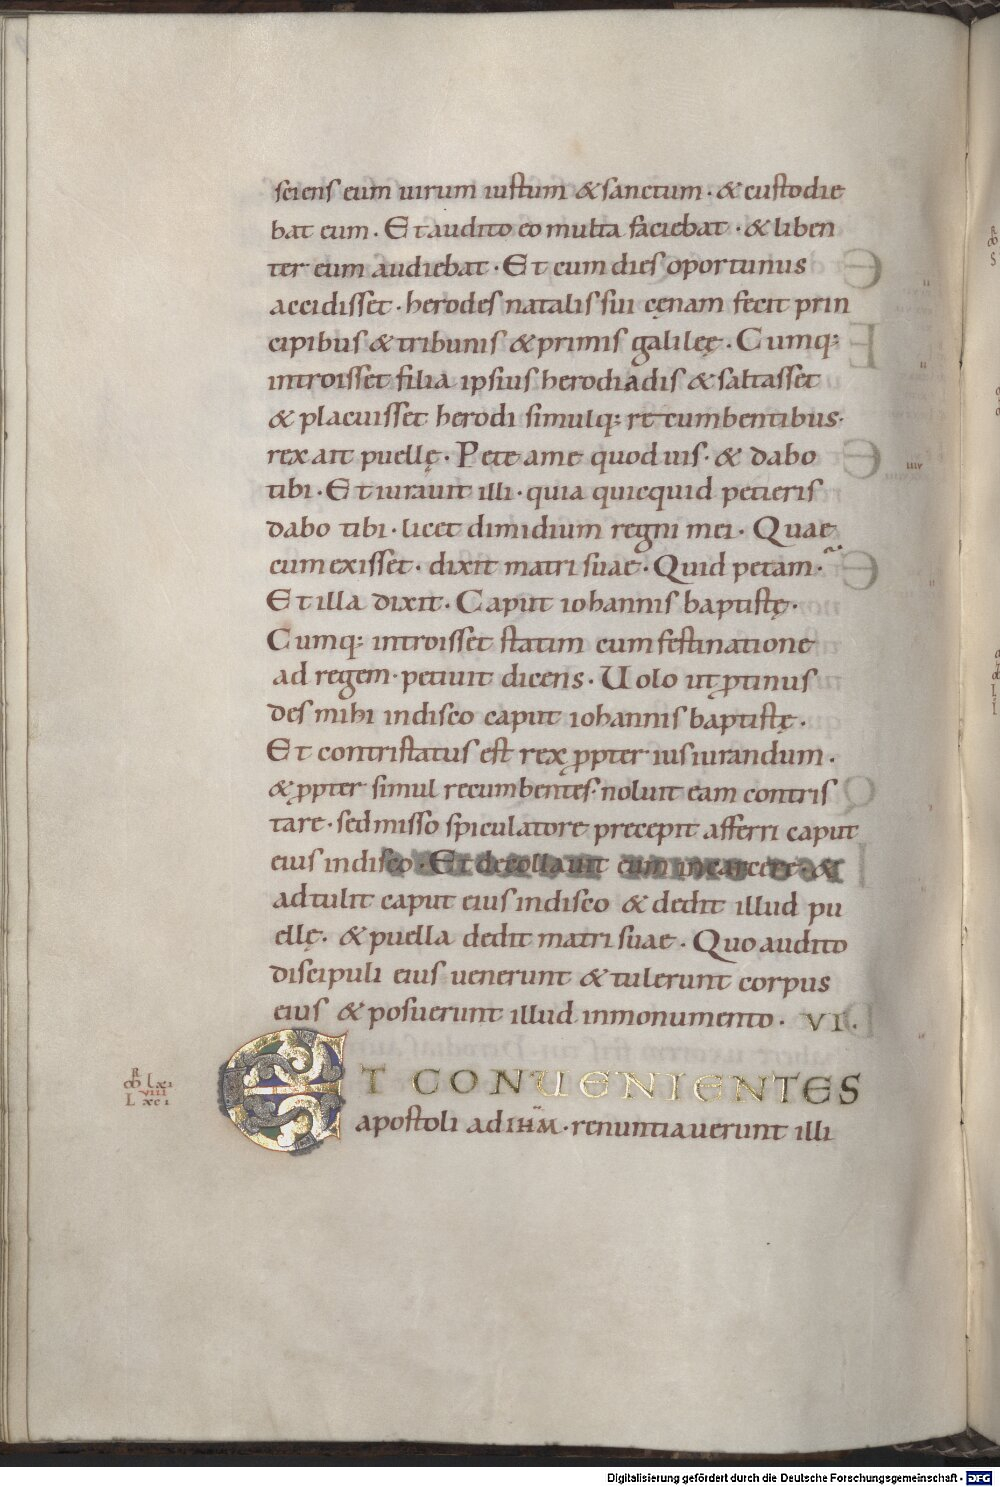 sciens eum uirum iustum & sanctum · & custodie
bat eum · Et audito eo multa faciebat · & liben
ter eum audiebat · Et cum dies oportunus
accidisset · herodes natalis sui cęnam fecit prin
cipibus & tribunis & primis galileę · Cumq;
introisset filia ipsius herodiadis & saltasset
& placuisset herodi simulq; recumbentibus ·
rex ait puellę · Pete a me quod uis · & dabo
tibi · Et iurauit illi · quia quicquid petieris
dabo tibi · licet dimidium regni mei · Quae
cum exisset · dixit matri suae · Quid petam ·
Et illa dixit · Caput iohannis baptistę ·
Cumq; introisset statim cum festinatione
ad regem · petiuit dicens · Uolo ut ꝓtinus
des mihi in disco caput iohannis baptistę ·
Et contristatus est rex ꝓpter iusiurandum ·
& ꝓpter simul recumbentes · noluit eam contris
tare · sed misso spiculatore precepit afferri caput
eius in disco · Et decollauit eum in carcere · &
adtulit caput eius in disco & dedit illud pu
ellę · & puella dedit matri suae · Quo audito
discipuli eius uenerunt & tulerunt corpus
eius & posuerunt illud in monumento · VI ·
ET CONUENIENTES
apostoli ad ihm̄ · renuntiauerunt illi
Digitalisierung gefördert durch die Deutsche Forschungsgemeinschaft - DFG